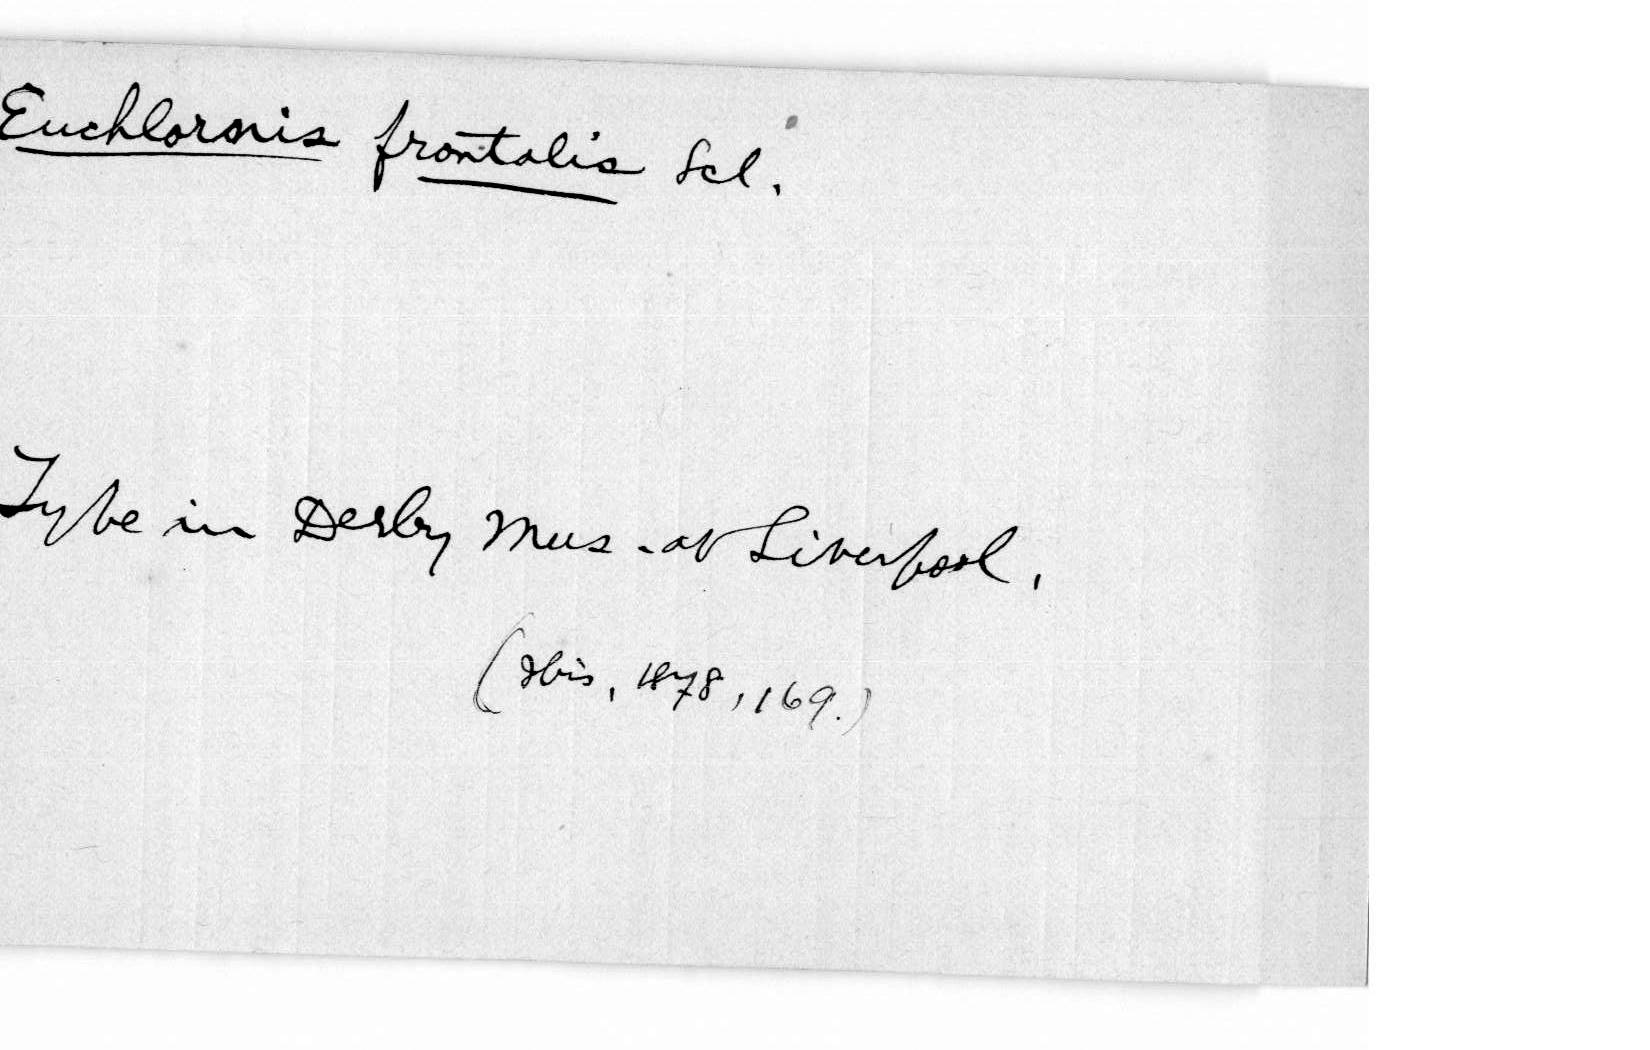 Euchlornis frontalis Scl.
Type in Derby Mus. at Liverpool.
(Ibis, 1878, 169.)